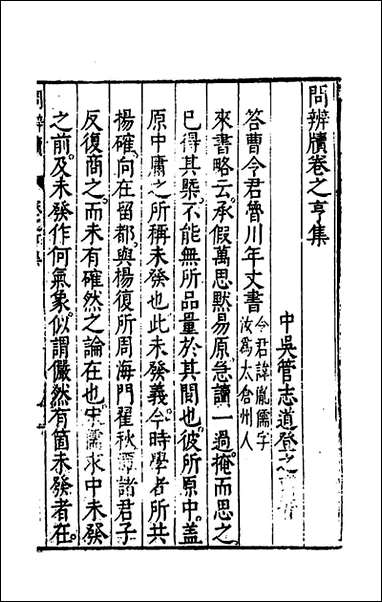 問辨牘卷之亨集
中吳管志道登之
答曹令君魯川年丈書
令君諱胤儒字
汝為太倉州人
來書略云承假萬思默易原急讀一過掩而思之
已得其槩不能無所品量於其間也彼所原中蓋
原中庸之所稱未發也此未發義今時學者所共
揚確向在留都與楊復所周海門翟秋潭諸君子
反復商之而未有確然之論在也宋儒求中未發
之前及未發作何氣象似謂儼然有箇未發者在
問辨牘